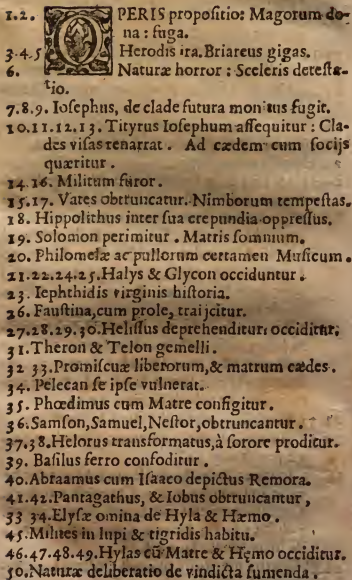 1.2. OPERIS propoſitio: Magorum do-
na: fuga.
3.4.5 Herodis ira. Briareus gigas.
6. Naturæ horror: Sceleris deteſta-
tio.
7.8.9. Ioſephus, de clade futura monitus fugit.
10.11.12.13. Tityrus Ioſephum aſſequitur: Cla-
des viſas renarrat. Ad cædem cum ſocijs
quæritur.
14.16. Militum furor.
15.17. Vates obtruncatur. Nimborum tempeſtas.
18. Hippolithus inter ſua crepundia oppreſſus.
19. Solomon perimitur. Matris ſomnium.
20. Philomelæ ac pullorum certamen Muſicum.
21.22.24.25. Halys & Glycon occiduntur.
23. Iephthidis virginis hiſtoria.
26. Fauſtina, cum prole, traijcitur.
27.28.29.30. Heliſſus deprehenditur: occiditur;
31. Theron & Telon gemelli.
32 33. Promiſcuæ liberorum, & matrum cædes.
34. Pelecan ſe ipſe vulnerat.
35. Phœdimus cum Matre configitur.
36. Samſon, Samuel, Neſtor, obtruncantur.
37.38. Helorus transformatus, à ſorore proditur.
39. Baſilus ferro confoditur.
40. Abraamus cum Iſaaco depictus Remora.
41.42. Pantagathus, & Iobus obtruncantur,
33 34. Elyſæ omina de Hyla & Hæmo.
45. Milites in lupi & tigridis habitu.
46.47.48.49. Hylas cũ Matre & Hęmo occiditur.
50. Naturæ deliberatio de vindicta ſumenda.